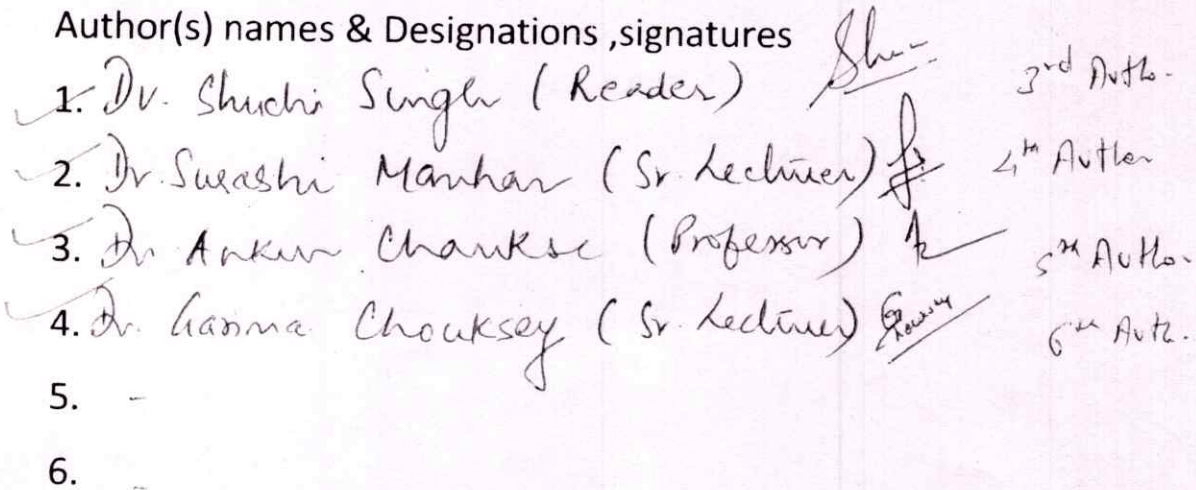 Author(s) names & Designations ,signatures
1. Dr. Shuchi Singh (Reader) 3rd Autho.
2. Dr. Surashi Manhar (Sr. Lecturer) 4th Author
3. Dr Ankur Chaukse (Professor) 5th Autho.
4. Dr. Garima Chouksey (Sr. Lecturer) 6th Auth.
5. -
6. -